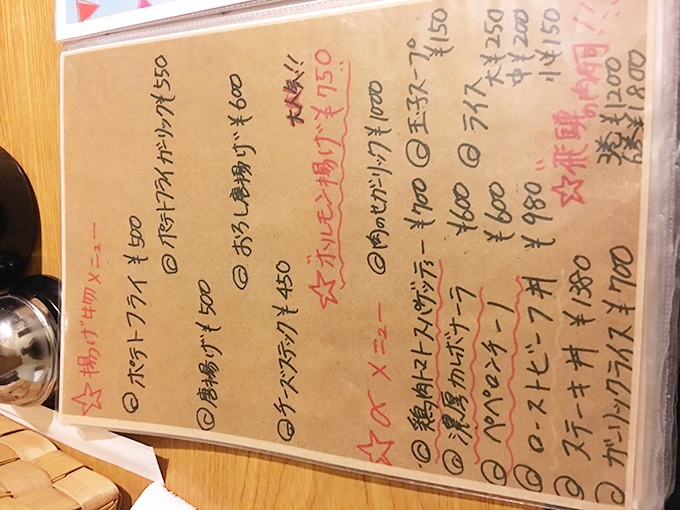 ☆揚げ物メニュー
◎ポテトフライ ¥500
◎ポテトフライガーリック ¥550
◎唐揚げ ¥500
◎おろし唐揚げ ¥600
◎チーズスティック ¥450
大人気!!
☆ホルモン揚げ ¥750
◎肉のせガーリック ¥1000
☆〆メニュー
◎鶏肉トマトスパゲッティー ¥700
◎玉子スープ ¥150
◎濃厚カルボナーラ ¥600
◎ペペロンチーノ ¥600
◎ライス 大¥250
中¥200
小¥150
◎ローストビーフ丼 ¥980
◎ステーキ丼 ¥1380
◎ガーリックライス ¥700
☆飛騨の肉寿司!!
3巻¥1200
6巻¥1800